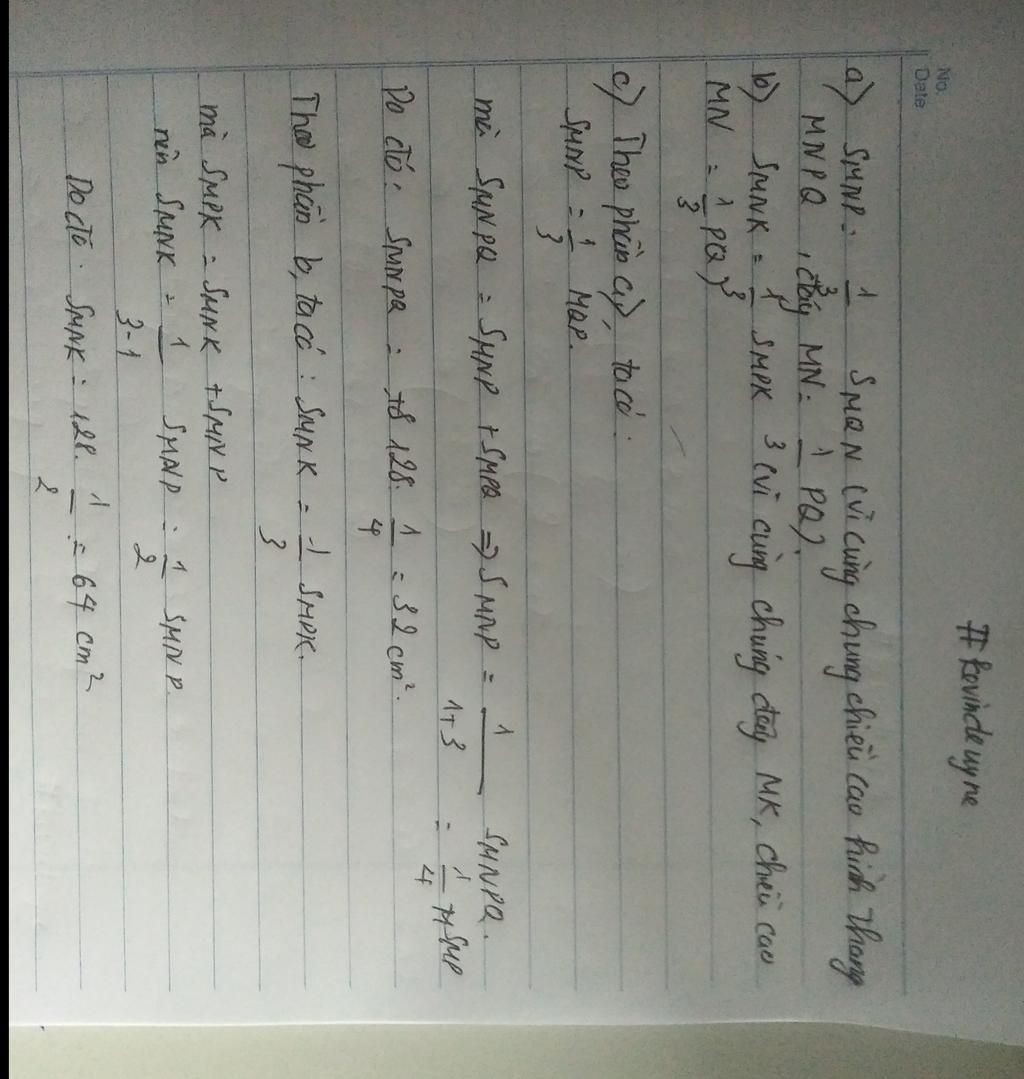 No.
Date
# kevindeuyne
a) SMNP = 1/3 SMQN (vì cùng chung chiều cao hình thang
MNPQ, đáy MN = 1/3 PQ).
b) SMNK = 1/3 SMPK (vì cùng chung đáy MK, chiều cao
MN = 1/3 PQ)
c) Theo phần a, ta có:
SMNP = 1/3 MQP.
mà SMNPQ = SMNP + SMPQ => SMNP = 1/1+3 SMNPQ.
= 1/4 SMP
Do đó: SMNPQ = 128. 1/4 = 32 cm².
Theo phần b, ta có: SMNK = 1/3 SMPK.
mà SMPK = SMNK + SMNP
nên SMNK = 1/3-1 SMNP = 1/2 SMNP.
Do đó. SMNK = 128. 1/2 = 64 cm²